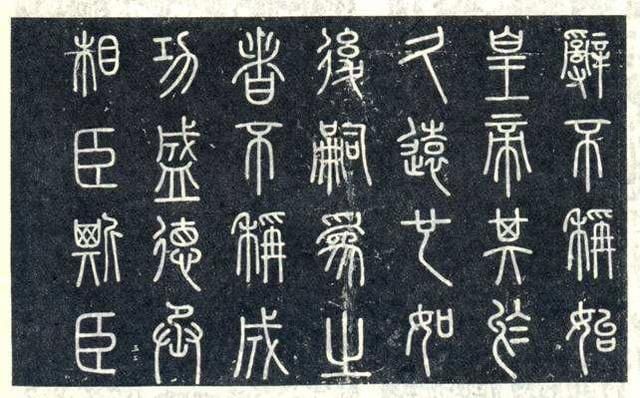 辭不稱始
皇帝其於
久遠也如
後嗣爲之
者不稱成
功盛德丞
相臣斯臣